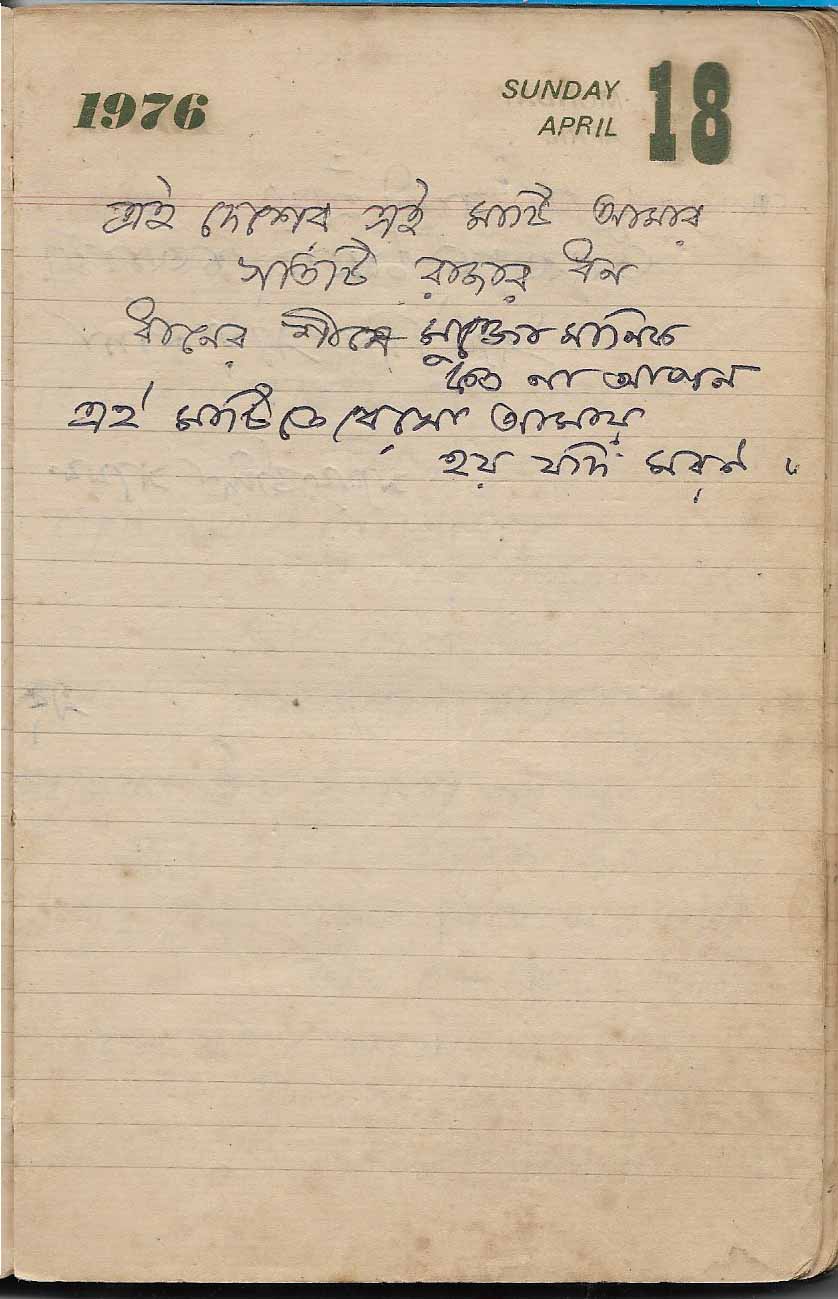 1976
SUNDAY 18
APRIL
এই দেশের এই মাটি আমার
সাতটি রাজার ধন
ধানের শীষে মুক্তো মানিক
কত না আপন
এই মাটিতে রেখো আমায়
হয় যদি মরণ ।